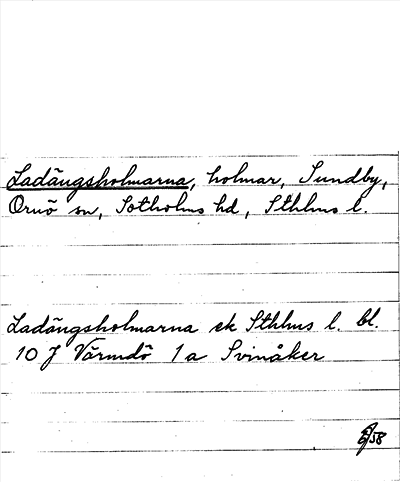 Ladängsholmarna, holmar, Sundby,
Ornö sn, Sotholms hd, Sthlms l.
Ladängsholmarna ek Sthlms l. bl.
10 J Värmdö 1 a Svinåker
58